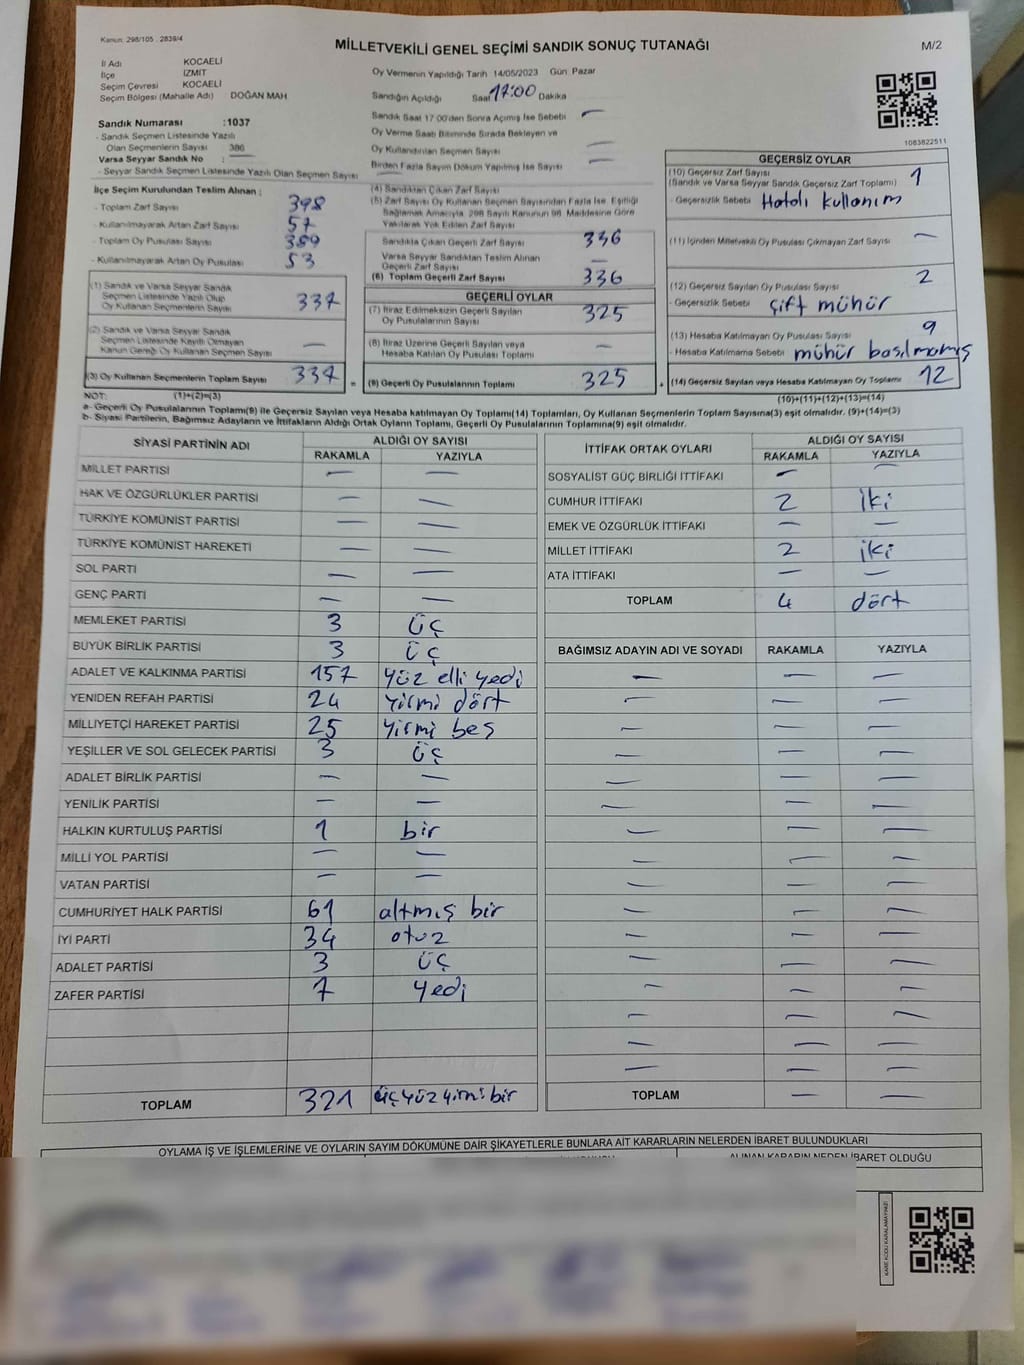 Kanun: 298/105 . 2839/4
MİLLETVEKİLİ GENEL SEÇİMİ SANDIK SONUÇ TUTANAĞI
M/2
İl Adı KOCAELİ
İlçe İZMİT
Seçim Çevresi KOCAELİ
Seçim Bölgesi (Mahalle Adı) DOĞAN MAH
Sandık Numarası :1037
- Sandık Seçmen Listesinde Yazılı
Olan Seçmenlerin Sayısı 386
Varsa Seyyar Sandık No : —
- Seyyar Sandık Seçmen Listesinde Yazılı Olan Seçmen Sayısı —
Oy Vermenin Yapıldığı Tarih 14/05/2023 Gün: Pazar
Sandığın Açıldığı Saat 17:00 Dakika
Sandık Saat 17:00'den Sonra Açımış İse Sebebi —
Oy Verme Saati Bitiminde Sırada Bekleyen ve
Oy Kullandırılan Seçmen Sayısı —
Birden Fazla Sayım Döküm Yapılmış İse Sayısı —
1083822511
İlçe Seçim Kurulundan Teslim Alınan ;
- Toplam Zarf Sayısı 398
- Kullanılmayarak Artan Zarf Sayısı 57
- Toplam Oy Pusulası Sayısı 389
- Kullanılmayarak Artan Oy Pusulası 53
(1) Sandık ve Varsa Seyyar Sandık
Seçmen Listesinde Yazılı Olup
Oy Kullanan Seçmenlerin Sayısı 337
(2) Sandık ve Varsa Seyyar Sandık
Seçmen Listesinde Kayıtlı Olmayan
Kanun Gereği Oy Kullanan Seçmen Sayısı —
(3) Oy Kullanan Seçmenlerin Toplam Sayısı 337 =
(4) Sandıktan Çıkan Zarf Sayısı
(5) Zarf Sayısı Oy Kullanan Seçmen Sayısından Fazla İse, Eşitliği
Sağlamak Amacıyla, 298 Sayılı Kanunun 98. Maddesine Göre
Yakılarak Yok Edilen Zarf Sayısı
Sandıkta Çıkan Geçerli Zarf Sayısı 336
Varsa Seyyar Sandıktan Teslim Alınan
Geçerli Zarf Sayısı —
(6) Toplam Geçerli Zarf Sayısı 336
GEÇERLİ OYLAR
(7) İtiraz Edilmeksizin Geçerli Sayılan
Oy Pusulalarının Sayısı 325
(8) İtiraz Üzerine Geçerli Sayılan veya
Hesaba Katılan Oy Pusulası Toplamı —
(9) Geçerli Oy Pusulalarının Toplamı 325 +
GEÇERSİZ OYLAR
(10) Geçersiz Zarf Sayısı 1
(Sandık ve Varsa Seyyar Sandık Geçersiz Zarf Toplamı)
- Geçersizlik Sebebi Hatalı kullanım
(11) İçinden Milletvekili Oy Pusulası Çıkmayan Zarf Sayısı —
(12) Geçersiz Sayılan Oy Pusulası Sayısı 2
- Geçersizlik Sebebi çift mühür
(13) Hesaba Katılmayan Oy Pusulası Sayısı 9
- Hesaba Katılmama Sebebi mühür basılmamış
(14) Geçersiz Sayılan veya Hesaba Katılmayan Oy Toplamı 12
NOT: (1)+(2)=(3)
(10)+(11)+(12)+(13)=(14)
a- Geçerli Oy Pusulalarının Toplamı(9) ile Geçersiz Sayılan veya Hesaba katılmayan Oy Toplamı(14) Toplamları, Oy Kullanan Seçmenlerin Toplam Sayısına(3) eşit olmalıdır. (9)+(14)=(3)
b- Siyasi Partilerin, Bağımsız Adayların ve İttifakların Aldığı Ortak Oyların Toplamı, Geçerli Oy Pusulalarının Toplamına(9) eşit olmalıdır.
SİYASİ PARTİNİN ADI ALDIĞI OY SAYISI
RAKAMLA YAZIYLA
MİLLET PARTİSİ — —
HAK VE ÖZGÜRLÜKLER PARTİSİ — —
TÜRKİYE KOMÜNİST PARTİSİ — —
TÜRKİYE KOMÜNİST HAREKETİ — —
SOL PARTİ — —
GENÇ PARTİ — —
MEMLEKET PARTİSİ 3 üç
BÜYÜK BİRLİK PARTİSİ 3 üç
ADALET VE KALKINMA PARTİSİ 157 yüz elli yedi
YENİDEN REFAH PARTİSİ 24 yirmi dört
MİLLİYETÇİ HAREKET PARTİSİ 25 yirmi beş
YEŞİLLER VE SOL GELECEK PARTİSİ 3 üç
ADALET BİRLİK PARTİSİ — —
YENİLİK PARTİSİ — —
HALKIN KURTULUŞ PARTİSİ 1 bir
MİLLİ YOL PARTİSİ — —
VATAN PARTİSİ — —
CUMHURİYET HALK PARTİSİ 61 altmış bir
İYİ PARTİ 34 otuz
ADALET PARTİSİ 3 üç
ZAFER PARTİSİ 7 yedi
TOPLAM 321 üçyüzyirmi bir
İTTİFAK ORTAK OYLARI ALDIĞI OY SAYISI
RAKAMLA YAZIYLA
SOSYALİST GÜÇ BİRLİĞİ İTTİFAKI — —
CUMHUR İTTİFAKI 2 iki
EMEK VE ÖZGÜRLÜK İTTİFAKI — —
MİLLET İTTİFAKI 2 iki
ATA İTTİFAKI — —
TOPLAM 4 dört
BAĞIMSIZ ADAYIN ADI VE SOYADI RAKAMLA YAZIYLA
TOPLAM — —
OYLAMA İŞ VE İŞLEMLERİNE VE OYLARIN SAYIM DÖKÜMÜNE DAİR ŞİKAYETLERLE BUNLARA AİT KARARLARIN NELERDEN İBARET BULUNDUKLARI
ALINAN KARARIN NEDEN İBARET OLDUĞU
KARE KODU KARALAMAYINIZ!